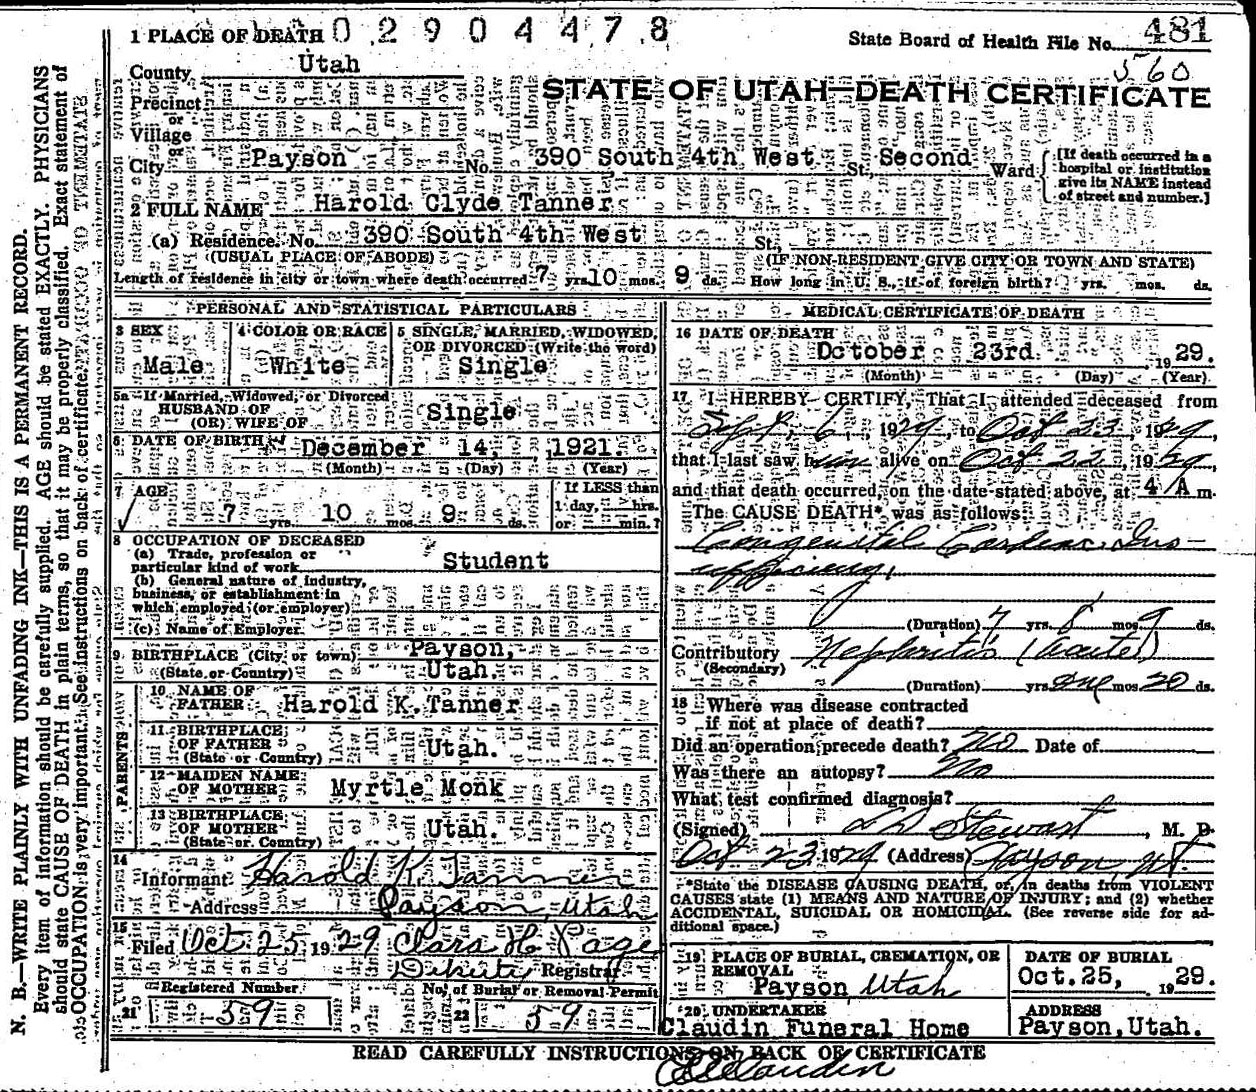 1 PLACE OF DEATH 02904478
State Board of Health File No. 481
560
County Utah
STATE OF UTAH—DEATH CERTIFICATE
Precinct
or
Village
City Payson No. 390 South 4th West St., Second Ward
[If death occurred in a hospital or institution give its NAME instead of street and number.]
2 FULL NAME Harold Clyde Tanner
(a) Residence. No. 390 South 4th West St.
(USUAL PLACE OF ABODE) (IF NON-RESIDENT GIVE CITY OR TOWN AND STATE)
Length of residence in city or town where death occurred 7 yrs. 10 mos. 9 ds. How long in U. S., if of foreign birth? yrs. mos. ds.
PERSONAL AND STATISTICAL PARTICULARS
3 SEX
Male
4 COLOR OR RACE
White
5 SINGLE, MARRIED, WIDOWED, OR DIVORCED (Write the word)
Single
5a If Married, Widowed, or Divorced
HUSBAND OF
(OR) WIFE OF Single
6 DATE OF BIRTH December 14, 1921.
(Month) (Day) (Year)
7 AGE
7 yrs. 10 mos. 9 ds.
If LESS than
1 day, hrs.
or min.?
8 OCCUPATION OF DECEASED
(a) Trade, profession or
particular kind of work Student
(b) General nature of industry,
business, or establishment in
which employed (or employer)
(c) Name of Employer
9 BIRTHPLACE (City or town) Payson,
(State or Country) Utah.
PARENTS
10 NAME OF
FATHER Harold K. Tanner
11 BIRTHPLACE
OF FATHER
(State or Country) Utah.
12 MAIDEN NAME
OF MOTHER Myrtle Monk
13 BIRTHPLACE
OF MOTHER
(State or Country) Utah.
14
Informant Harold K. Tanner
Address Payson, Utah
15
Filed Oct 25 1929 Clara H. Page
Deputy Registrar
Registered Number
21 59
No. of Burial or Removal Permit
22 59
MEDICAL CERTIFICATE OF DEATH
16 DATE OF DEATH
October 23rd. 1929.
(Month) (Day) (Year)
17 I HEREBY CERTIFY, That I attended deceased from
Sept. 6, 1929, to Oct 23, 1929,
that I last saw him alive on Oct 22, 1929,
and that death occurred, on the date stated above, at 4 A m.
The CAUSE DEATH* was as follows:
Congenital Cardiac Ins-
ufficiency,
(Duration) 7 yrs. 8 mos. 9 ds.
Contributory Nephritis (acute)
(Secondary)
(Duration) yrs. one mos. 20 ds.
18 Where was disease contracted
if not at place of death?
Did an operation precede death? No Date of
Was there an autopsy? No
What test confirmed diagnosis?
(Signed) L D Stewart, M. D.
Oct 23 1929 (Address) Payson, Ut.
*State the DISEASE CAUSING DEATH, or, in deaths from VIOLENT
CAUSES state (1) MEANS AND NATURE OF INJURY; and (2) whether
ACCIDENTAL, SUICIDAL OR HOMICIDAL. (See reverse side for ad-
ditional space.)
19 PLACE OF BURIAL, CREMATION, OR
REMOVAL
Payson, Utah
DATE OF BURIAL
Oct.25, 1929.
20 UNDERTAKER
Claudin Funeral Home
ADDRESS
Payson, Utah.
READ CAREFULLY INSTRUCTIONS ON BACK OF CERTIFICATE
N. B.—WRITE PLAINLY WITH UNFADING INK—THIS IS A PERMANENT RECORD.
Every item of information should be carefully supplied. AGE should be stated EXACTLY. PHYSICIANS
should state CAUSE OF DEATH in plain terms, so that it may be properly classified. Exact statement of
OCCUPATION is very important. See instructions on back of certificate.